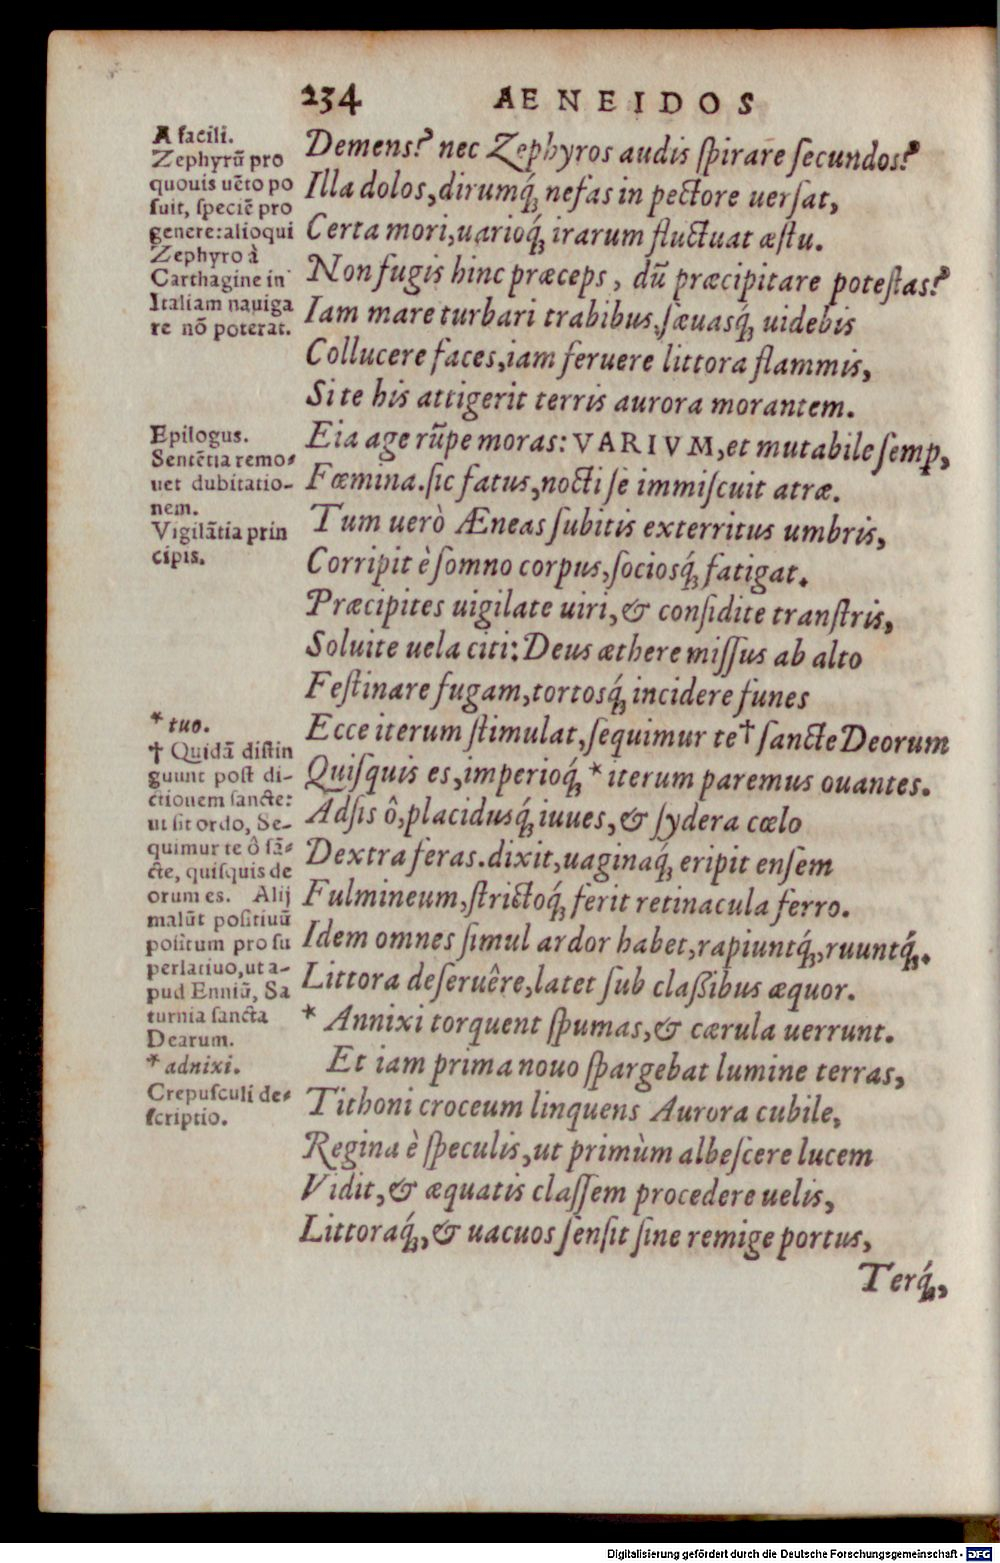 234 AENEIDOS
A facili.
Zephyrũ pro
quouis uẽto po
suit, speciẽ pro
genere: alioqui
Zephyro à
Carthagine in
Italiam nauiga
re nõ poterat.
Demens? nec Zephyros audis spirare secundos?
Illa dolos, dirumq́; nefas in pectore uersat,
Certa mori, uarioq́; irarum fluctuat æstu.
Non fugis hinc præceps, dũ præcipitare potestas?
Iam mare turbari trabibus, sæuasq́; uidebis
Collucere faces, iam feruere littora flammis,
Si te his attigerit terris aurora morantem.
Epilogus.
Sentẽtia remo-
uet dubitatio-
nem.
Vigilãtia prin
cipis.
Eia age rũpe moras: VARIVM, et mutabile semp,
Fœmina. sic fatus, nocti se immiscuit atræ.
Tum uerò Æneas subitis exterritus umbris,
Corripit è somno corpus, sociosq́; fatigat.
Præcipites uigilate uiri, & considite transtris,
Soluite uela citi: Deus æthere missus ab alto
Festinare fugam, tortosq́; incidere funes
* tuo.
† Quidã distin
guunt post di-
ctionem sancte:
ut sit ordo, Se-
quimur te ô sã-
cte, quisquis de
orum es. Alij
malũt positiuũ
positum pro su
perlatiuo, ut a-
pud Enniũ, Sa
turnia sancta
Dearum.
* adnixi.
Crepusculi de-
scriptio.
Ecce iterum stimulat, sequimur te † sancte Deorum
Quisquis es, imperioq́; * iterum paremus ouantes.
Adsis ô, placidusq́; iuues, & sydera cœlo
Dextra feras. dixit, uaginaq́; eripit ensem
Fulmineum, strictoq́; ferit retinacula ferro.
Idem omnes simul ardor habet, rapiuntq́;, ruuntq́;.
Littora deseruêre, latet sub claßibus æquor.
* Annixi torquent spumas, & cærula uerrunt.
Et iam prima nouo spargebat lumine terras,
Tithoni croceum linquens Aurora cubile,
Regina è speculis, ut primùm albescere lucem
Vidit, & æquatis classem procedere uelis,
Littoraq́;, & uacuos sensit sine remige portus,
Terq́;,
Digitalisierung gefördert durch die Deutsche Forschungsgemeinschaft - DFG